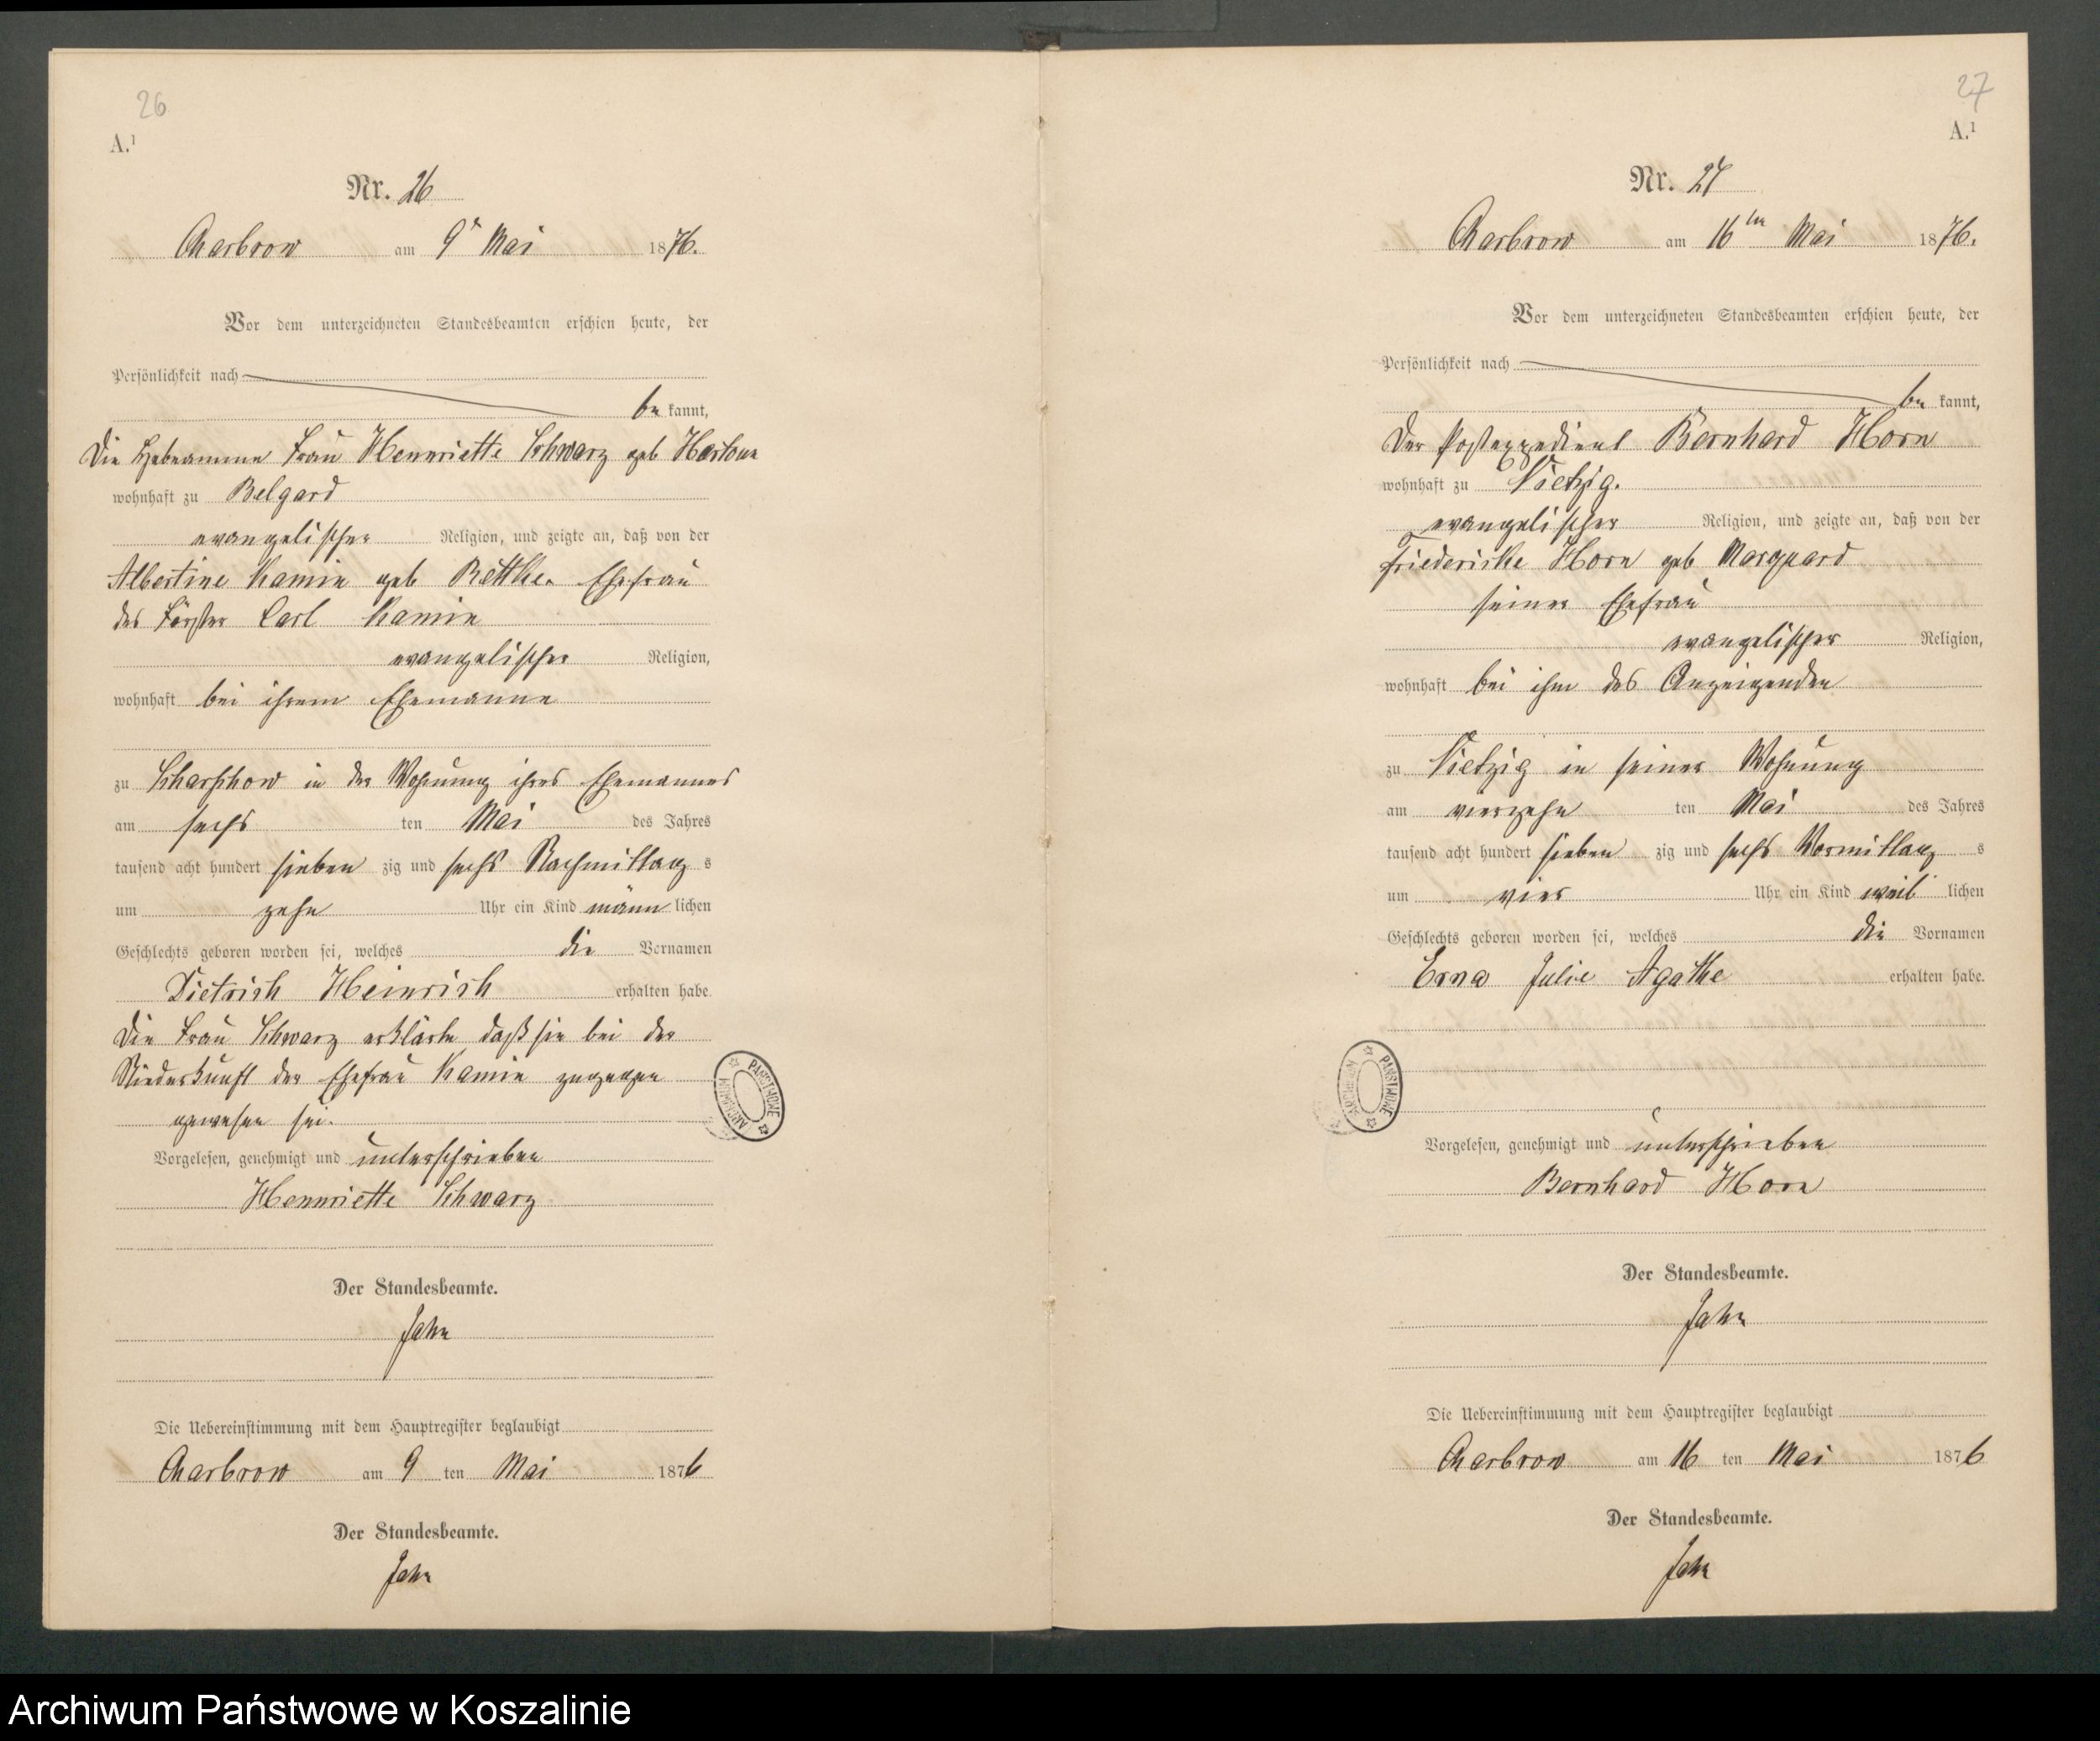 26
A.¹
Nr. 26
Charbrow am 9ᵗ Mai 1876.
Vor dem unterzeichneten Standesbeamten erschien heute, der
Persönlichkeit nach
be kannt,
Die Hebeamme Frau Hennriette Schwarz geb
wohnhaft zu Belgard
evangelischer Religion, und zeigte an, daß von der
Albertine Kamin geb Rettke. Ehefrau
des Förster Carl Kamin
evangelischer Religion,
wohnhaft bei ihrem Ehemanne
zu Scharschow in der Wohnung ihres Ehemannes
am sechs ten Mai des Jahres
tausend acht hundert sieben zig und sechs Nachmittag s
um zehn Uhr ein Kind männ lichen
Geschlechts geboren worden sei, welches die Vornamen
Dietrich Heinrich erhalten habe.
Die Frau Schwarz erklärte daß sie bei der
Niederkunft der Ehefrau Kamin zugegen
gewesen sei.
Vorgelesen, genehmigt und unterschrieben
Hennriette Schwarz
Der Standesbeamte.
Jahn
Die Uebereinstimmung mit dem Hauptregister beglaubigt
Charbrow am 9 ten Mai 1876
Der Standesbeamte.
Jahn
ARCHIWUM PAŃSTWOWE
27
A.¹
Nr. 27
Charbrow am 16ten Mai 1876.
Vor dem unterzeichneten Standesbeamten erschien heute, der
Persönlichkeit nach
be kannt,
Der Postexpedient Bernhard Horn
wohnhaft zu Vietzig.
evangelischer Religion, und zeigte an, daß von der
Friedericke Horn geb Marquard
seiner Ehefrau
evangelischer Religion,
wohnhaft bei ihm des Anzeigenden
zu Vietzig in seiner Wohnung
am vierzehn ten Mai des Jahres
tausend acht hundert sieben zig und sechs Vormittag s
um vier Uhr ein Kind weib lichen
Geschlechts geboren worden sei, welches die Vornamen
Erna Julie Agathe erhalten habe.
ARCHIWUM PAŃSTWOWE
Vorgelesen, genehmigt und unterschrieben
Bernhard Horn
Der Standesbeamte.
Jahn
Die Uebereinstimmung mit dem Hauptregister beglaubigt
Charbrow am 16 ten Mai 1876
Der Standesbeamte.
Jahn
Archiwum Państwowe w Koszalinie